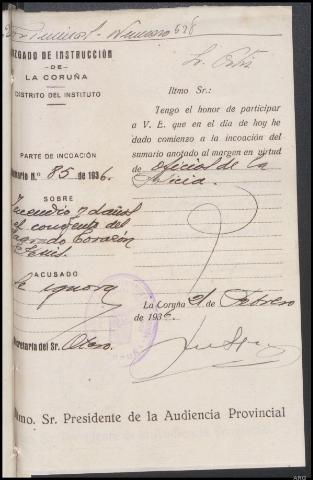 Numero 628
Sr. Ortiz
JUZGADO DE INSTRUCCIÓN
-DE-
LA CORUÑA
DISTRITO DEL INSTITUTO
PARTE DE INCOACIÓN
Sumario N.º 85 de 1936.
SOBRE
Incendio y daños
el convento del
Sagrado Corazón
ACUSADO
Se ignora
Secretaria del Sr. Otero.
Iltmo Sr:
Tengo el honor de participar
a V. E. que en el día de hoy he
dado comienzo a la incoación del
sumario anotado al margen en virtud
de oficios de la
Policia.
La Coruña 21 de Febrero
de 1936.
Iltmo. Sr. Presidente de la Audiencia Provincial
ARG